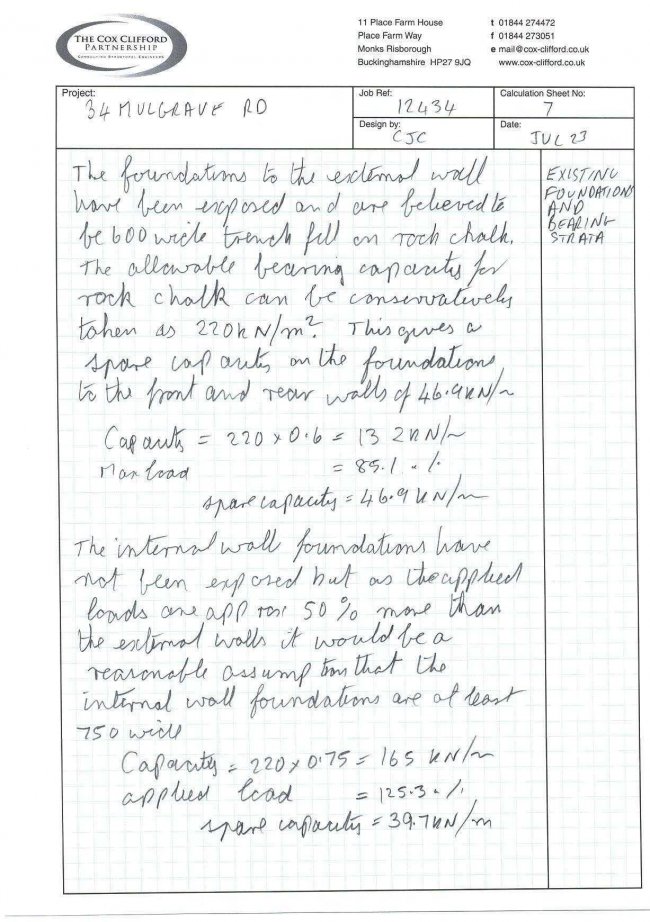 THE COX CLIFFORD
PARTNERSHIP
CONSULTING STRUCTURAL ENGINEERS
11 Place Farm House
Place Farm Way
Monks Risborough
Buckinghamshire HP27 9JQ
t 01844 274472
f 01844 273051
e mail@cox-clifford.co.uk
www.cox-clifford.co.uk
Project:
34 MULGRAVE RD
Job Ref:
12434
Calculation Sheet No:
7
Design by:
CJC
Date:
JUL 23
The foundations to the external wall
have been exposed and are believed to
be 600 wide trench fill on rock chalk.
The allowable bearing capacity for
rock chalk can be conservatively
taken as 220kN/m². This gives a
spare capacity on the foundations
to the front and rear walls of 46.9kN/m
Capacity = 220 x 0.6 = 132kN/m
Max load = 85.1 " /.
spare capacity = 46.9 kN/m
The internal wall foundations have
not been exposed but as the applied
loads are approx 50% more than
the external walls it would be a
reasonable assumption that the
internal wall foundations are at least
750 wide
Capacity = 220 x 0.75 = 165 kN/m
applied load = 125.3 " /.
spare capacity = 39.7kN/m
EXISTING
FOUNDATIONS
AND
BEARING
STRATA